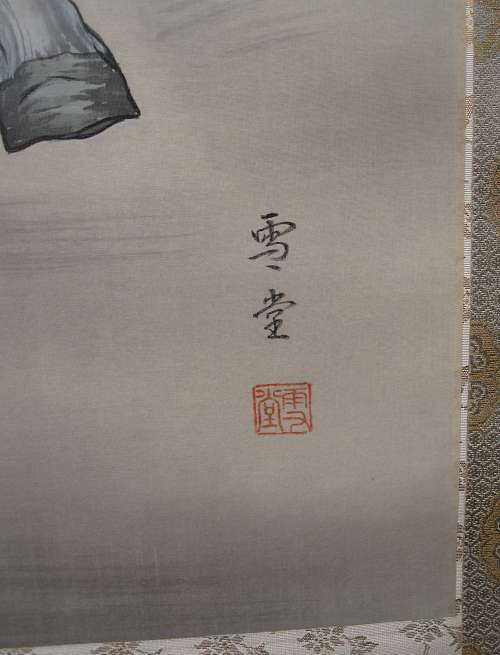 雪堂
雪堂